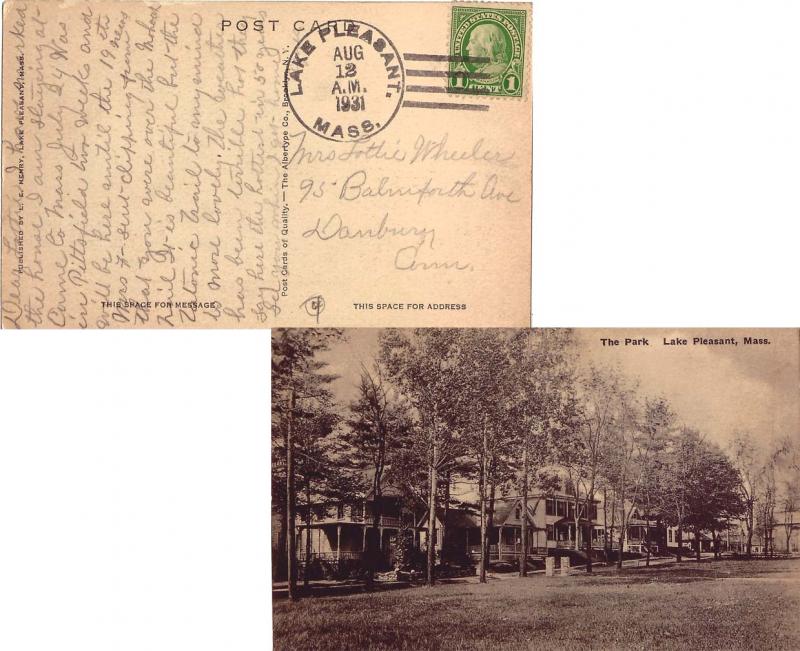 POST CARD
LAKE PLEASANT.
AUG
12
A.M.
1931
MASS.
UNITED STATES POSTAGE
FRANKLIN
1 1
CENT
Dear Lottie I have marked
the house I am staying at
Came to Mass July 24 Was
in Pittsfield two weeks and
will be here until the 19th
Mrs sent clipping from news
that you were over the Mohawk
trail It is beautiful but the
Tatonic trail to my mind
is more lovely, the weather
has been terrible hot they
say here the hottest in 50 years
PUBLISHED BY L. E. HENRY, LAKE PLEASANT, MASS.
Post Cards of Quality. — The Albertype Co., Brooklyn, N. Y.
Mrs Lottie Wheeler
95 Balmforth Ave
Danbury
Conn.
THIS SPACE FOR MESSAGE
THIS SPACE FOR ADDRESS
The Park Lake Pleasant, Mass.